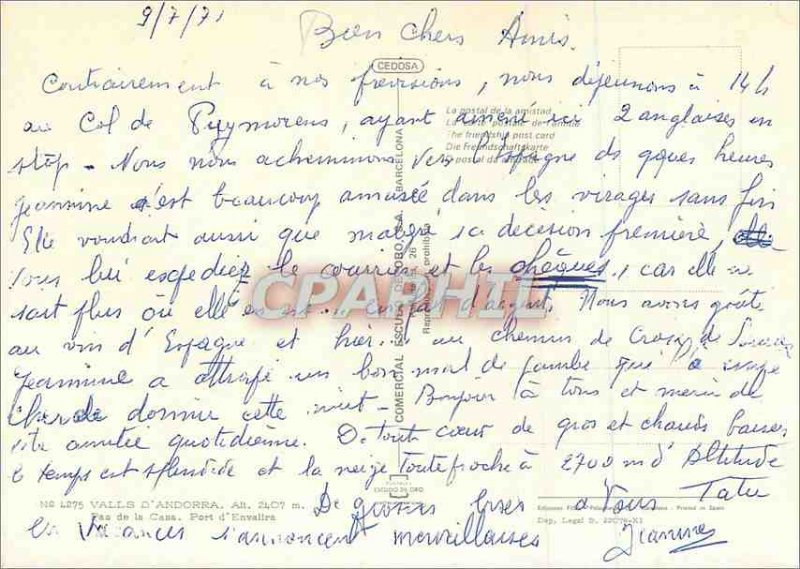 9/7/71
Bien Chers Amis.
CEDOSA
Contrairement à nos prévisions, nous déjeunons à 14h
au Col de Puymorens, ayant amené ici 2 anglaises en
stop - Nous nous acheminons vers l'Espagne ds qques heures
La postal de la amistad
The friendship post card
Die Freundschaftskarte
Jeannine s'est beaucoup amusée dans les virages sans fin
Elle voudrait aussi que malgré sa décision première,
vous lui expediez le courrier et les chèques, car elle ne
sait plus où elle en est Nous avons goûté
au vin d'Espagne et hier au chemin de Croix de
Jeannine a attrapé un bon mal de jambe qui
de dormir cette nuit - Bonjour à tous et merci de
amitiée quotidienne. De tout coeur de gros et chauds baisers
le temps est splendide et la neige toute proche à 2700 m d'Altitude
De grosses bises à Vous Tatu
les vacances s'annoncent merveilleuses Jeannine
COMERCIAL ESCUDO DE ORO, S.A. BARCELONA
CPARPHIL
ESCUDO DE ORO
Nº 4275 VALLS D'ANDORRA. Alt. 2407 m.
Pas de la Casa. Port d'Envalira
Printed in Spain
Dep. Legal B.